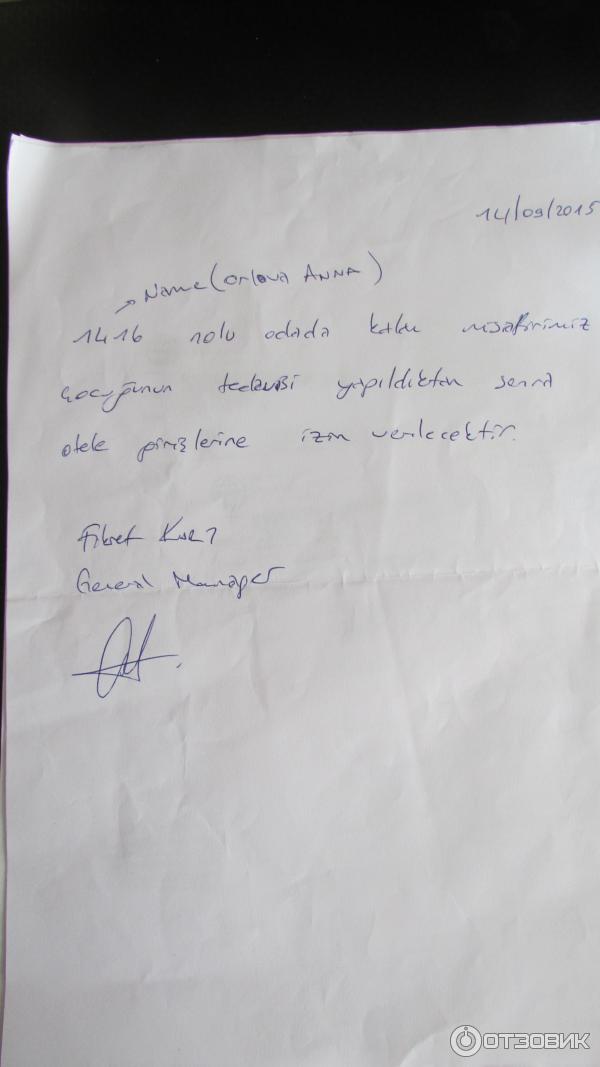 14/09/2015
Name (Orlova ANNA)
1416 nolu odada kalan misafirimiz
çocuğunun tedavisi yapıldıktan sonra
otele girişlerine izin verilecektir.
Fikret
General Manager
ОТЗОВИК